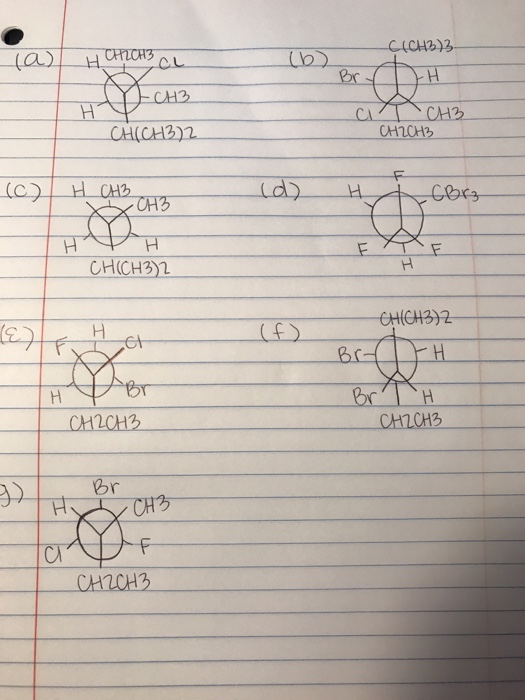 (a) H CH2CH3 Cl
CH3
H
CH(CH3)2
(b) C(CH3)3
Br H
Cl CH3
CH2CH3
(c) H CH3
CH3
H H
CH(CH3)2
(d) F
H CBr3
F F
H
(E) H
F Cl
H Br
CH2CH3
(f) CH(CH3)2
Br H
Br H
CH2CH3
g) Br
H CH3
Cl F
CH2CH3